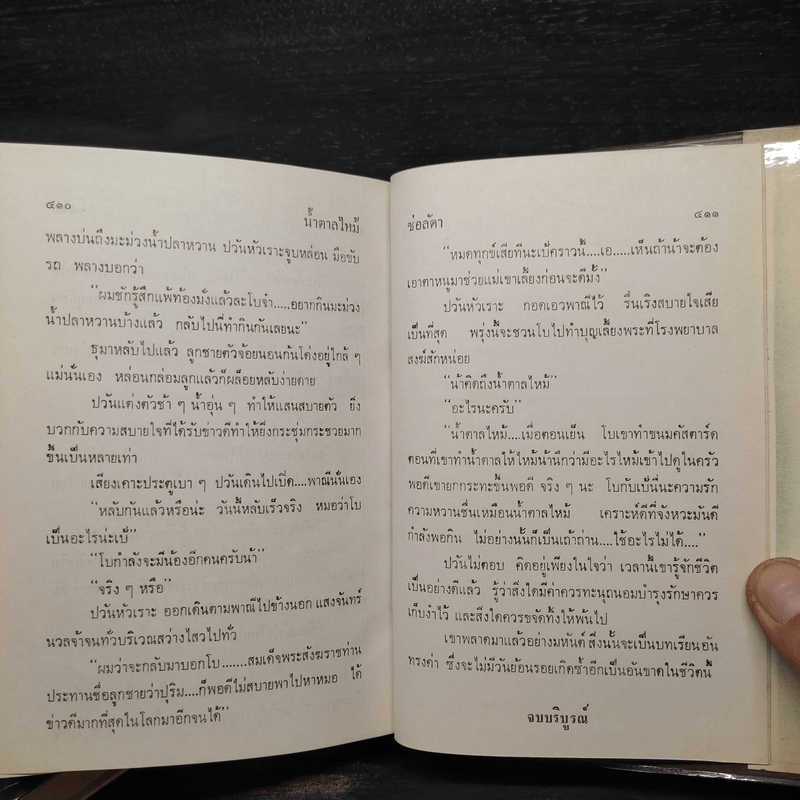 ๔๑๐
น้ำตาลไหม้
พลางบ่นถึงมะม่วงน้ำปลาหวาน ปวันหัวเราะจูบหล่อน มือขับ
รถ พลางบอกว่า
“ผมชักรู้สึกแพ้ท้องมั่งแล้วละโบจ๋า.....อยากกินมะม่วง
น้ำปลาหวานบ้างแล้ว กลับไปนี่ทำกินกันเลยนะ”
ธุมาหลับไปแล้ว ลูกชายตัวจ้อยนอนก้นโด่งอยู่ใกล้ ๆ
แม่นั่นเอง หล่อนกล่อมลูกแล้วก็ผล็อยหลับง่ายดาย
ปวันแต่งตัวช้า ๆ น้ำอุ่น ๆ ทำให้แสนสบายตัว ยิ่ง
บวกกับความสบายใจที่ได้รับข่าวดีทำให้ยิ่งกระชุ่มกระชวยมาก
ขึ้นเป็นหลายเท่า
เสียงเคาะประตูเบา ๆ ปวันเดินไปเปิด....พาณีนั่นเอง
“หลับกันแล้วหรือนะ วันนี้หลับเร็วจริง หมอว่าโบ
เป็นอะไรน่ะเป้”
“โบกำลังจะมีน้องอีกคนครับน้า”
“จริง ๆ หรือ”
ปวันหัวเราะ ออกเดินตามพาณีไปข้างนอก แสงจันทร์
นวลจ้าจนทั่วบริเวณสว่างไสวไปทั่ว
“ผมว่าจะกลับมาบอกโบ........สมเด็จพระสังฆราชท่าน
ประทานชื่อลูกชายว่าปุริม....ก็พอดีไม่สบายพาไปหาหมอ ได้
ข่าวดีมากที่สุดในโลกมาอีกจนได้”
ช่อลัดา
๔๑๑
“หมดทุกข์เสียทีนะเป้คราวนี้....เอ.....เห็นถ้าน้าจะต้อง
เอาตาหนูมาช่วยแม่เขาเลี้ยงก่อนจะดีมั้ง”
ปวันหัวเราะ กอดเอวพาณีไว้ รื่นเริงสบายใจเสีย
เป็นที่สุด พรุ่งนี้จะชวนโบไปทำบุญเลี้ยงพระที่โรงพยาบาล
สงฆ์สักหน่อย
“น้าคิดถึงน้ำตาลไหม้”
“อะไรนะครับ”
“น้ำตาลไหม้....เมื่อตอนเย็น โบเขาทำขนมคัสตาร์ด
ตอนที่เขาทำน้ำตาลให้ไหม้น้านึกว่ามีอะไรไหม้เข้าไปดูในครัว
พอดีเขายกกระทะขึ้นพอดี จริง ๆ นะ โบกับเป้นี่นะความรัก
ความหวานชื่นเหมือนน้ำตาลไหม้ เคราะห์ดีที่จังหวะมันดี
กำลังพอกิน ไม่อย่างนั้นก็เป็นเถ้าถ่าน....ใช้อะไรไม่ได้....”
ปวันไม่ตอบ คิดอยู่เพียงในใจว่า เวลานี้เขารู้จักชีวิต
เป็นอย่างดีแล้ว รู้ว่าสิ่งใดมีค่าควรทะนุถนอมบำรุงรักษาควร
เก็บงำไว้ และสิ่งใดควรขจัดทิ้งให้พ้นไป
เขาพลาดมาแล้วอย่างมหันต์ สิ่งนั้นจะเป็นบทเรียนอัน
ทรงค่า ซึ่งจะไม่มีวันย้อนรอยเกิดซ้ำอีกเป็นอันขาดในชีวิตนี้
จบบริบูรณ์